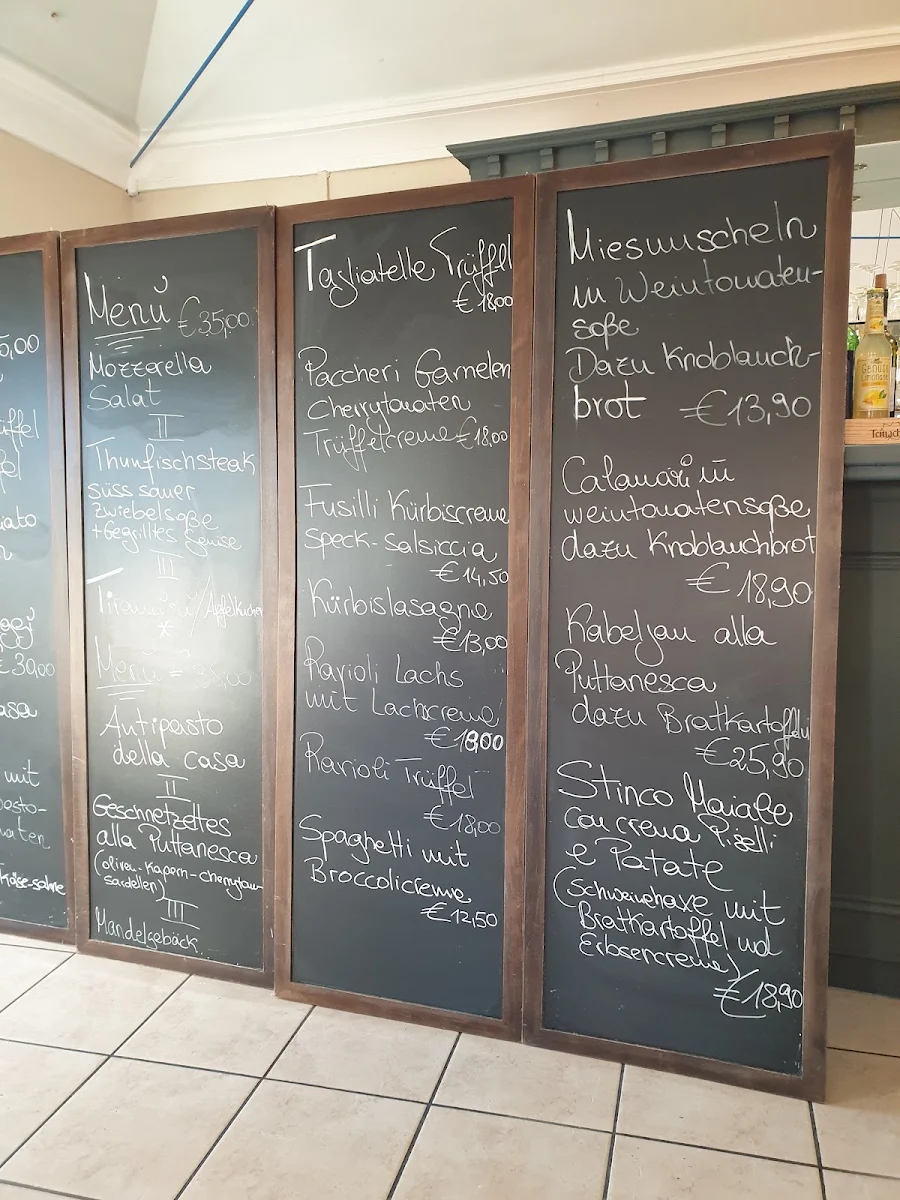 5,00
€30,00
mit
Menü €35,00
Mozzarella
Salat
II
Thunfischsteak
süss sauer
zwiebelsoße
+Gegrilltes Gemüse
III
Tiramisu/Apfelkuchen
*
Menü = 38,00
Antipasto
della casa
II
Geschnetzeltes
alla Puttanesca
(oliven-Kapern-cherrytom
sardellen)
III
Mandelgebäck
Tagliatelle Trüffel
€18,00
Paccheri Garnelen
Cherrytomaten
Trüffelcreme €18,00
Fusilli Kürbiscreme
Speck-Salsiccia
€14,50
Kürbislasagne
€13,00
Ravioli Lachs
mit Lachscreme
€18,00
Ravioli Trüffel
€18,00
Spaghetti mit
Broccolicreme
€12,50
Miesmuscheln
in Weintomaten-
soße
Dazu Knoblauch-
brot €13,90
Calamari in
weintomatensoße
dazu Knoblauchbrot
€18,90
Kabeljau alla
Puttanesca
dazu Bratkartoffeln
€25,90
Stinco Maiale
con crema Piselli
e Patate
(Schweinehaxe mit
Bratkartoffel und
Erbsencreme)
€18,90